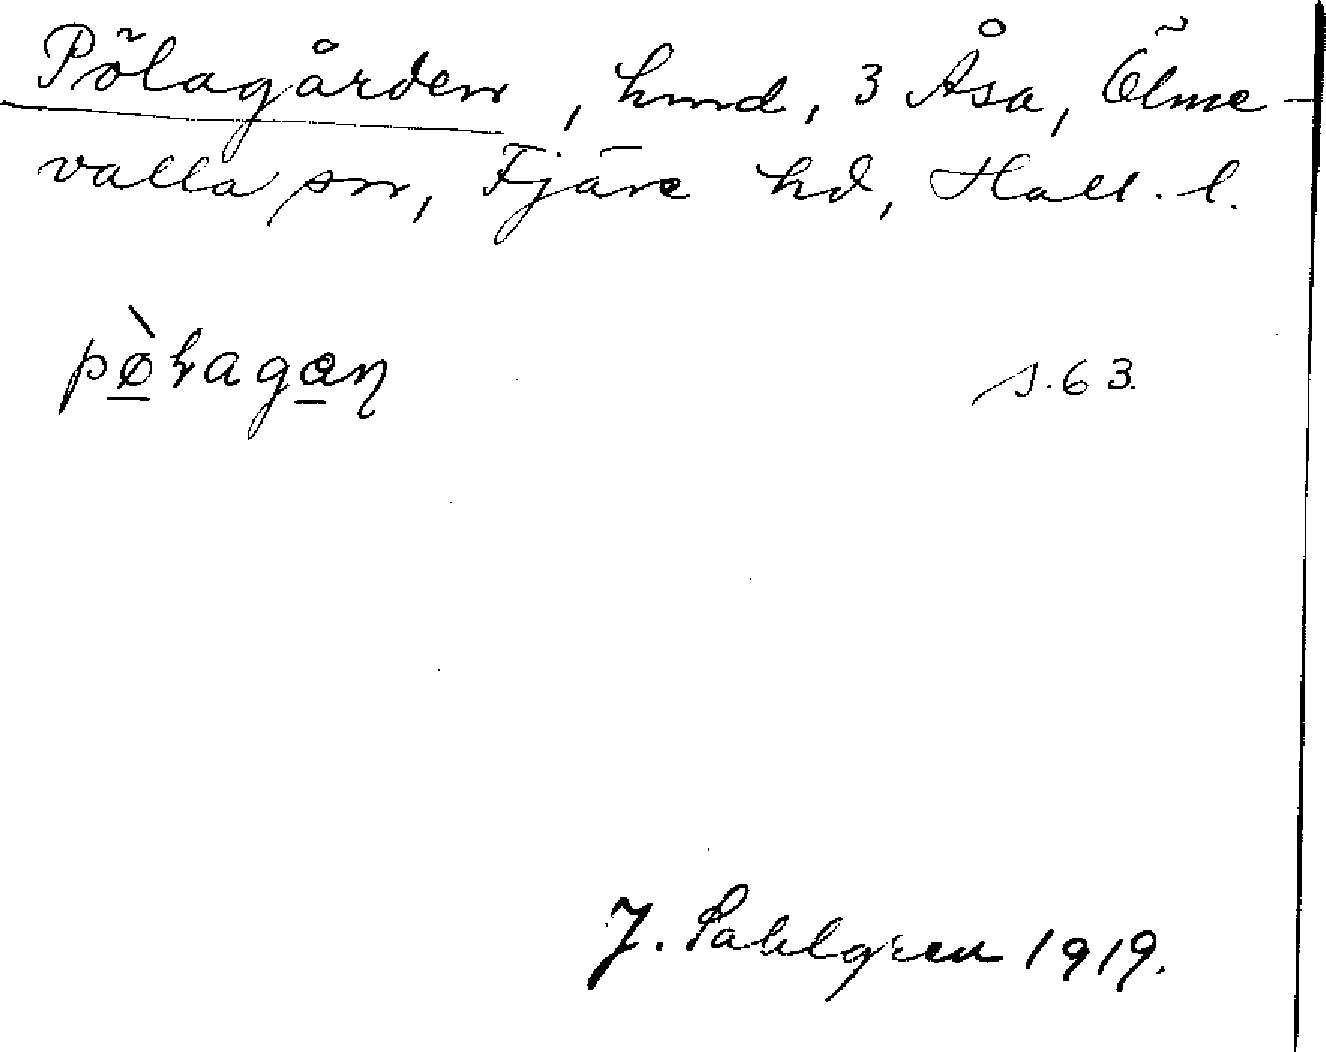 Pölagården, hmd, 3 Åsa, Ölme-
valla sn, Fjäre hd, Hall. l.
s. 63.
J. Sahlgren 1919.